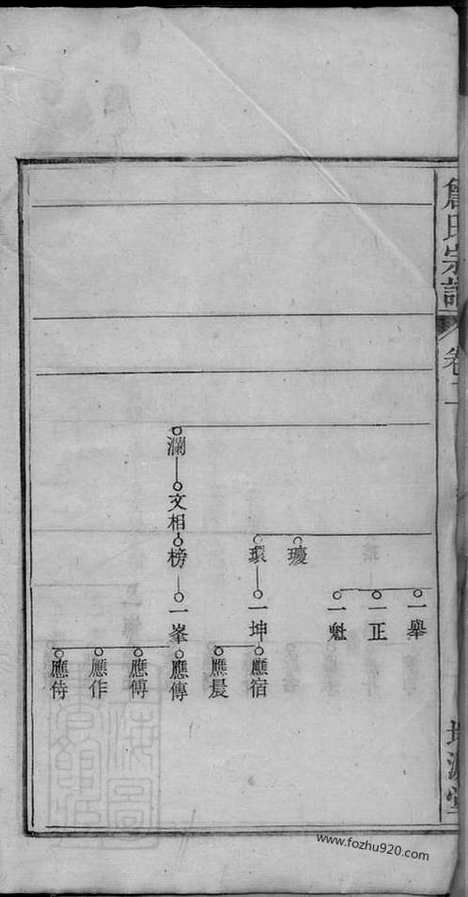 詹氏宗譜
卷二
一舉
一正
一魁
瓊
環
一坤
應宿
應晨
瀾
文相
榜
一峯
應傳
應傅
應作
應侍
www.fozhu920.com